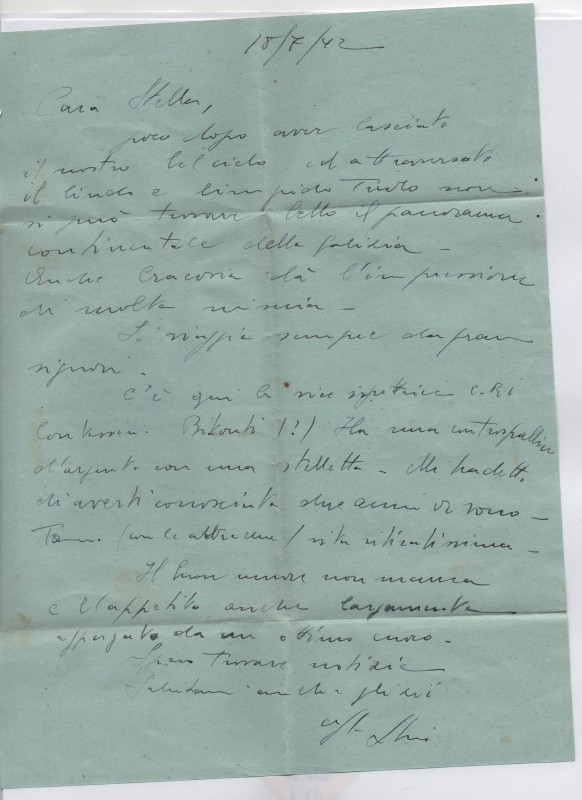 18/7/42
Cara Stella,
poco dopo aver lasciato
il nostro bel cielo ed attraversato
il lindo e limpido Tirolo non
si può trovare bello il panorama
continentale della Galizia -
Anche Cracovia dà l'impressione
di molta miseria -
Si viaggia sempre da gran
signori.
C'è qui la vice ispettrice C.R.I
Contessa Bikonti (?) Ha una controspallina
d'argento con una stelletta - Mi ha detto
di averti conosciuta due anni or sono -
(con le altre due) vita ritiratissima -
Il buon umore non manca
e l'appetito anche largamente
appagato da un ottimo cuoco -
Spero trovare notizie
Salutami anche gli zii
aff.